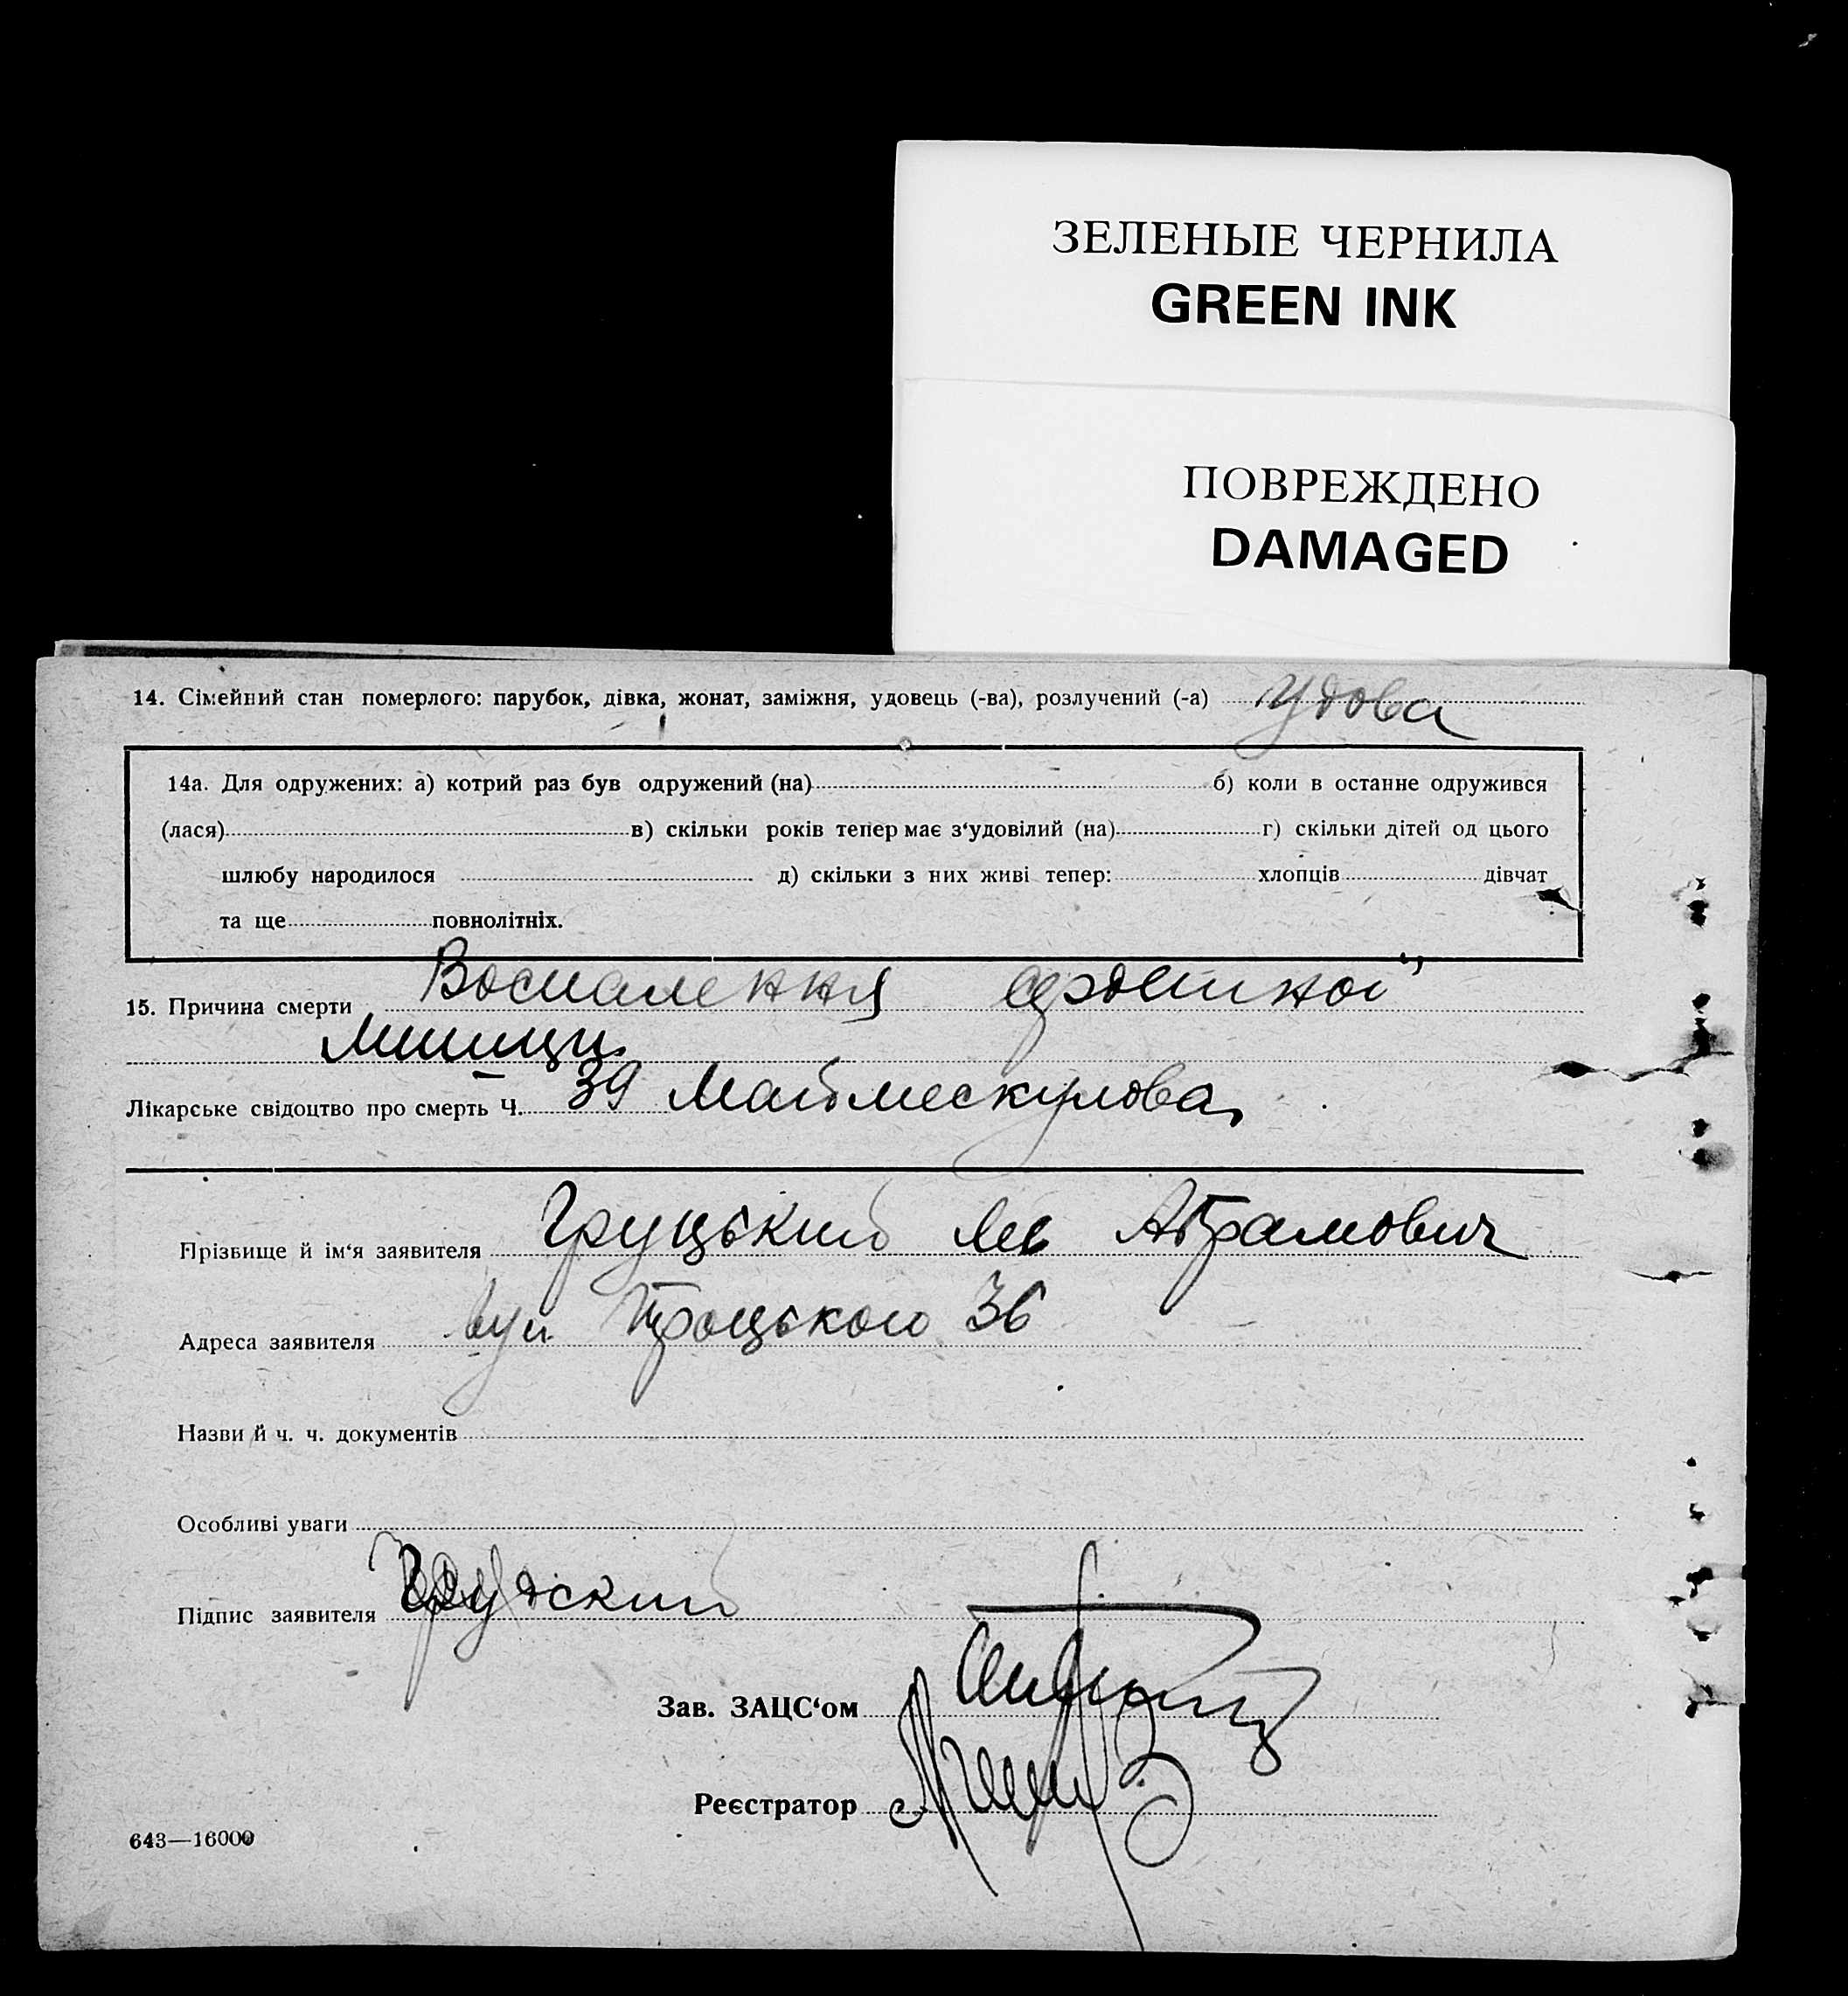 ЗЕЛЕНЫЕ ЧЕРНИЛА
GREEN INK
ПОВРЕЖДЕНО
DAMAGED
14. Сімейний стан померлого: парубок, дівка, жонат, заміжня, удовець (-ва), розлучений (-а) Удова
14а. Для одружених: а) котрий раз був одружений (на) б) коли в останне одружився
(лася) в) скільки років тепер має з‘удовілий (на) г) скільки дітей од цього
шлюбу народилося д) скільки з них живі тепер: хлопців дівчат
та ще повнолітніх.
15. Причина смерти Воспалення
Лікарське свідоцтво про смерть Ч. 39
Прізвище й ім‘я заявителя Груцький Лев Абрамович
Адреса заявителя вул Троцького 36
Назви й ч. ч. документів
Особливі уваги
Підпис заявителя
Зав. ЗАЦС‘ом
Реєстратор
643—16000